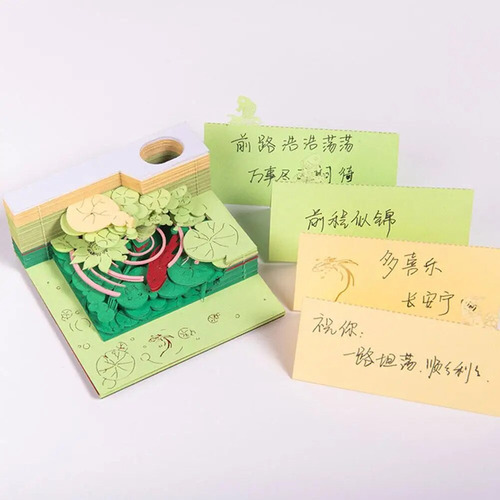 前路浩浩荡荡
万事尽可期待
前程似锦
多喜乐
长安宁
祝你：
一路坦荡，顺顺利利